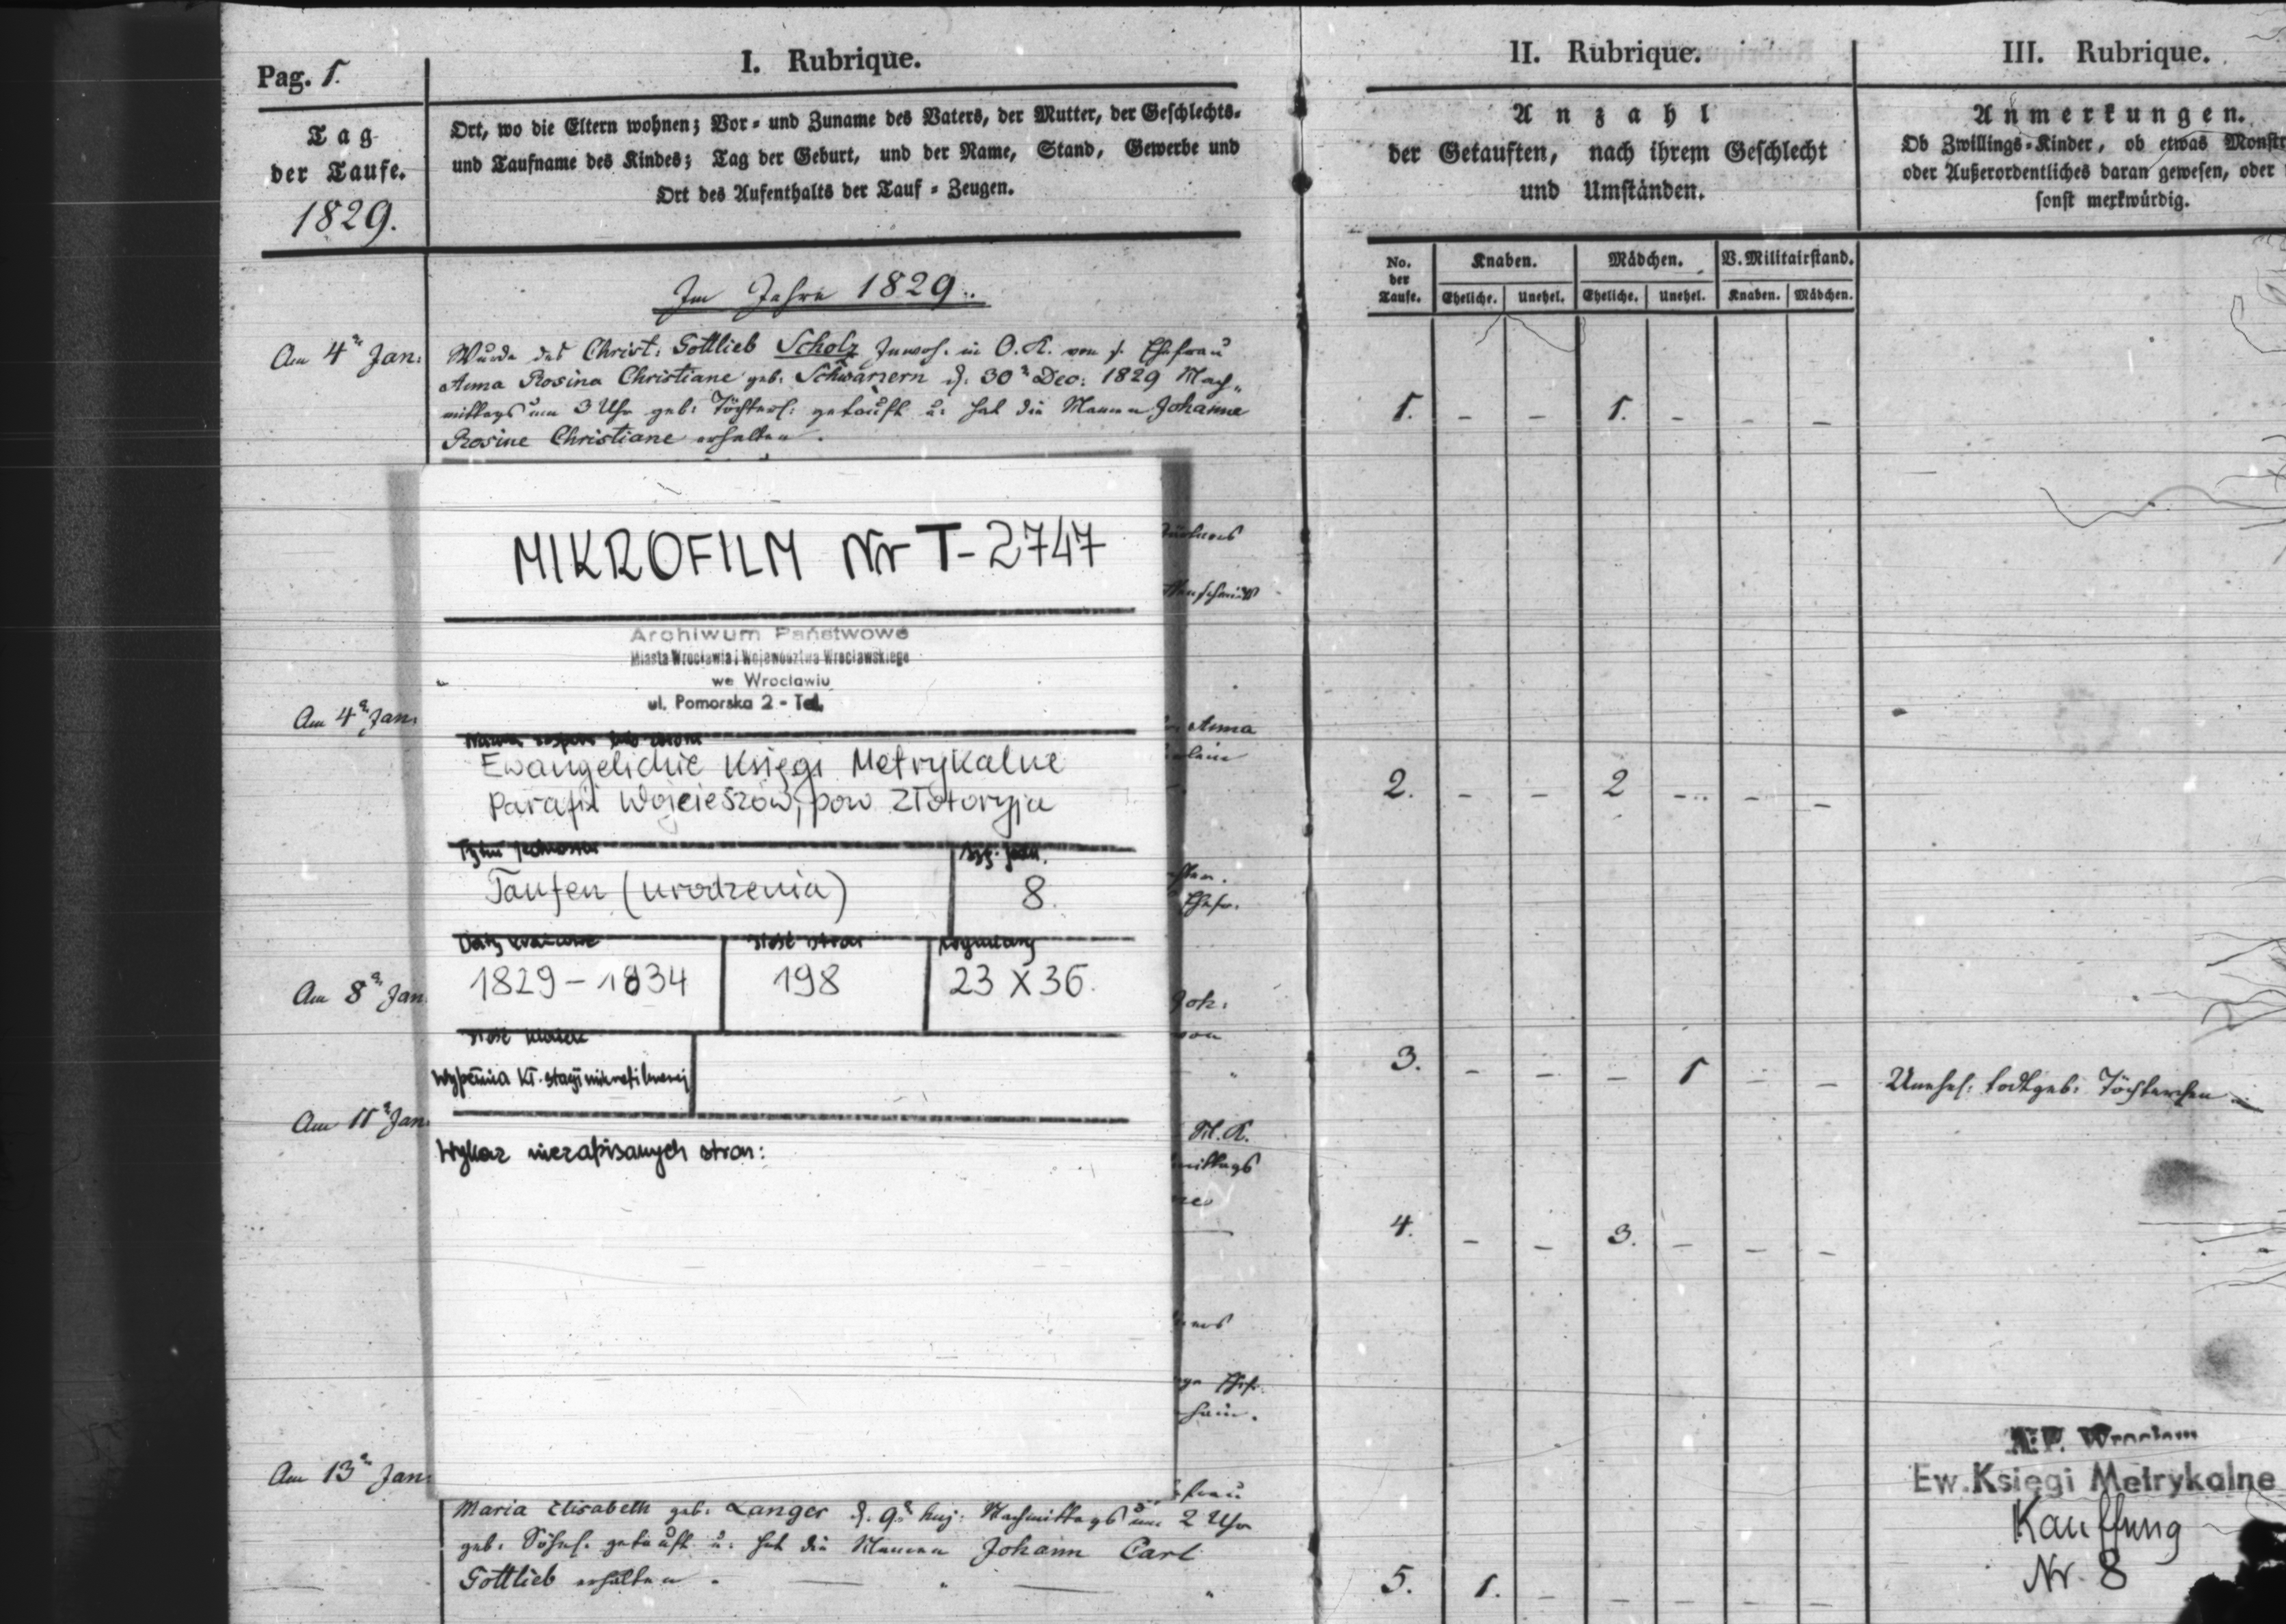 Pag. 1.
I. Rubrique.
Tag
der Taufe.
1829.
Ort, wo die Eltern wohnen; Vor- und Zuname des Vaters, der Mutter, der Geschlechts-
und Taufname des Kindes; Tag der Geburt, und der Name, Stand, Gewerbe und
Ort des Aufenthalts der Tauf-Zeugen.
Im Jahre 1829.
Am 4ⁿ Jan:
Wurde des Christ: Gottlieb Scholz Inwoh. in O. K. von s. Ehefrau
Anna Rosina Christiane geb. Schwarzern d. 30ⁿ Dec: 1829 Nach-
mittags um 3 Uhr geb: Töchterl: getauft u: hat die Namen Johanne
Rosine Christiane erhalten.
MIKROFILM Nr T-2747
Archiwum Państwowe
Miasta Wrocławia i Województwa Wrocławskiego
we Wrocławiu
ul. Pomorska 2 - Tel.
Am 4ⁿ Jan:
Anna
Ewangelickie Księgi Metrykalne
Parafii Wojcieszów, pow Złotoryja
Taufen (urodzenia)
8.
Ehefr.
1829-1834
198
23 X 36.
Am 8ⁿ Jan
Joh:
von
Wypełnia kl. stacji mikrofilmowej
Am 11ⁿ Jan:
Wykaz niezapisanych stron:
mittags
Am 13ⁿ Jan:
Maria Elisabeth geb. Langer d. 9ⁿ huj: Nachmittags um 2 Uhr
geb. Söhnl. getauft u: hat die Namen Johann Carl
Gottlieb erhalten.
II. Rubrique.
Anzahl
der Getauften, nach ihrem Geschlecht
und Umständen.
No. der Taufe.
Knaben.
Mädchen.
V. Militairstand.
Eheliche.
Unehel.
Eheliche.
Unehel.
Knaben.
Mädchen.
1. - - 1. - - -
2. - - 2 - - -
3. - - - 1 - -
4. - - 3. - - -
5. 1. - - - - -
III. Rubrique.
Anmerkungen.
Ob Zwillings-Kinder, ob etwas Monstr
oder Außerordentliches daran gewesen, oder
sonst merkwürdig.
Unehel: todtgeb: Töchterchen
A.P. Wrocław
Ew. Księgi Metrykalne
Kauffung
Nr. 8